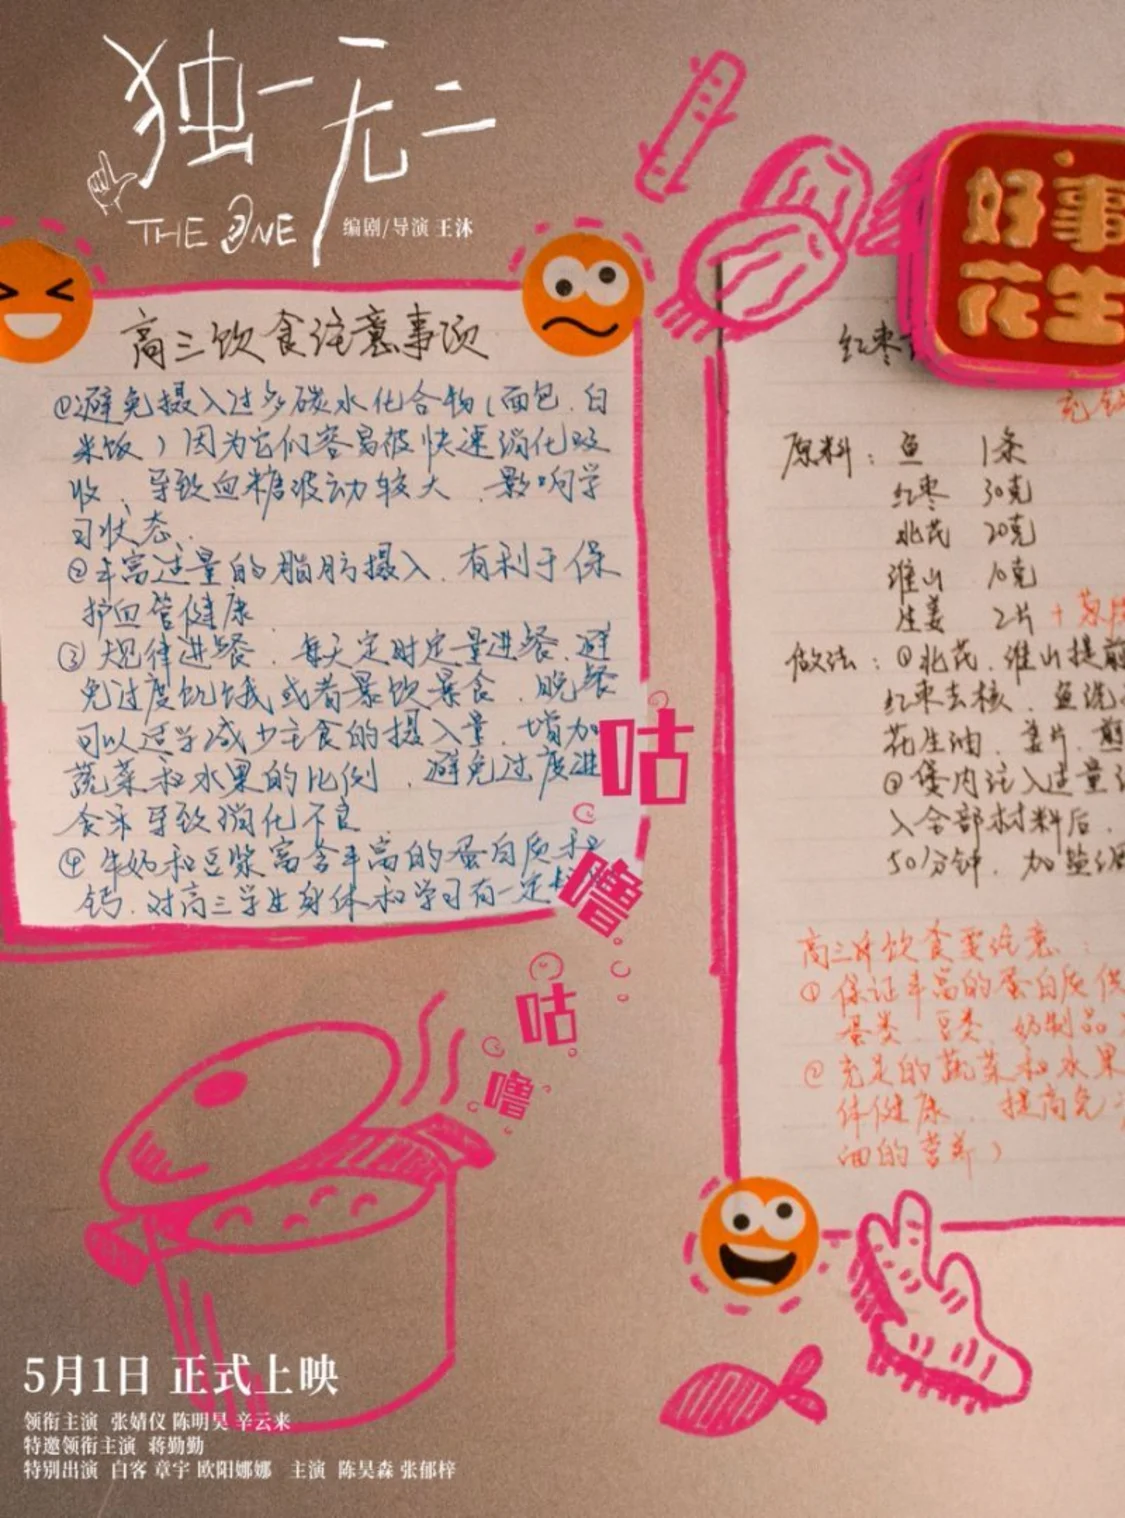 独一无二
THE ONE
编剧/导演 王沐
高三饮食注意事项
①避免摄入过多碳水化合物(面包、白
米饭)因为它们容易被快速消化吸
收、导致血糖波动较大、影响学
习状态、
②丰富适量的脂肪摄入、有利于保
护血管健康
③规律进餐、每天定时定量进餐、避
免过度饥饿或者暴饮暴食、晚餐
可以适当减少主食的摄入量、增加
蔬菜和水果的比例、避免过度进
食导致消化不良
④牛奶和豆浆富含丰富的蛋白质和
钙、对高三学生身体和学习有一定
咕
噜
咕
噜
好事
花生
红枣
原料:鱼 1条
红枣 30克
北芪 20克
淮山 10克
生姜 2片
做法:①北芪、淮山提前
红枣去核、鱼洗
花生油、姜片、煎
②煲内注入适量
入全部材料后、
50分钟、加盐调
高三生饮食要注意:
①保证丰富的蛋白质供
蛋类、豆类、奶制品
②充足的蔬菜和水果
体健康、提高免
的营养)
5月1日 正式上映
领衔主演 张婧仪 陈明昊 辛云来
特邀领衔主演 蒋勤勤
特别出演 白客 章宇 欧阳娜娜 主演 陈昊森 张郁梓